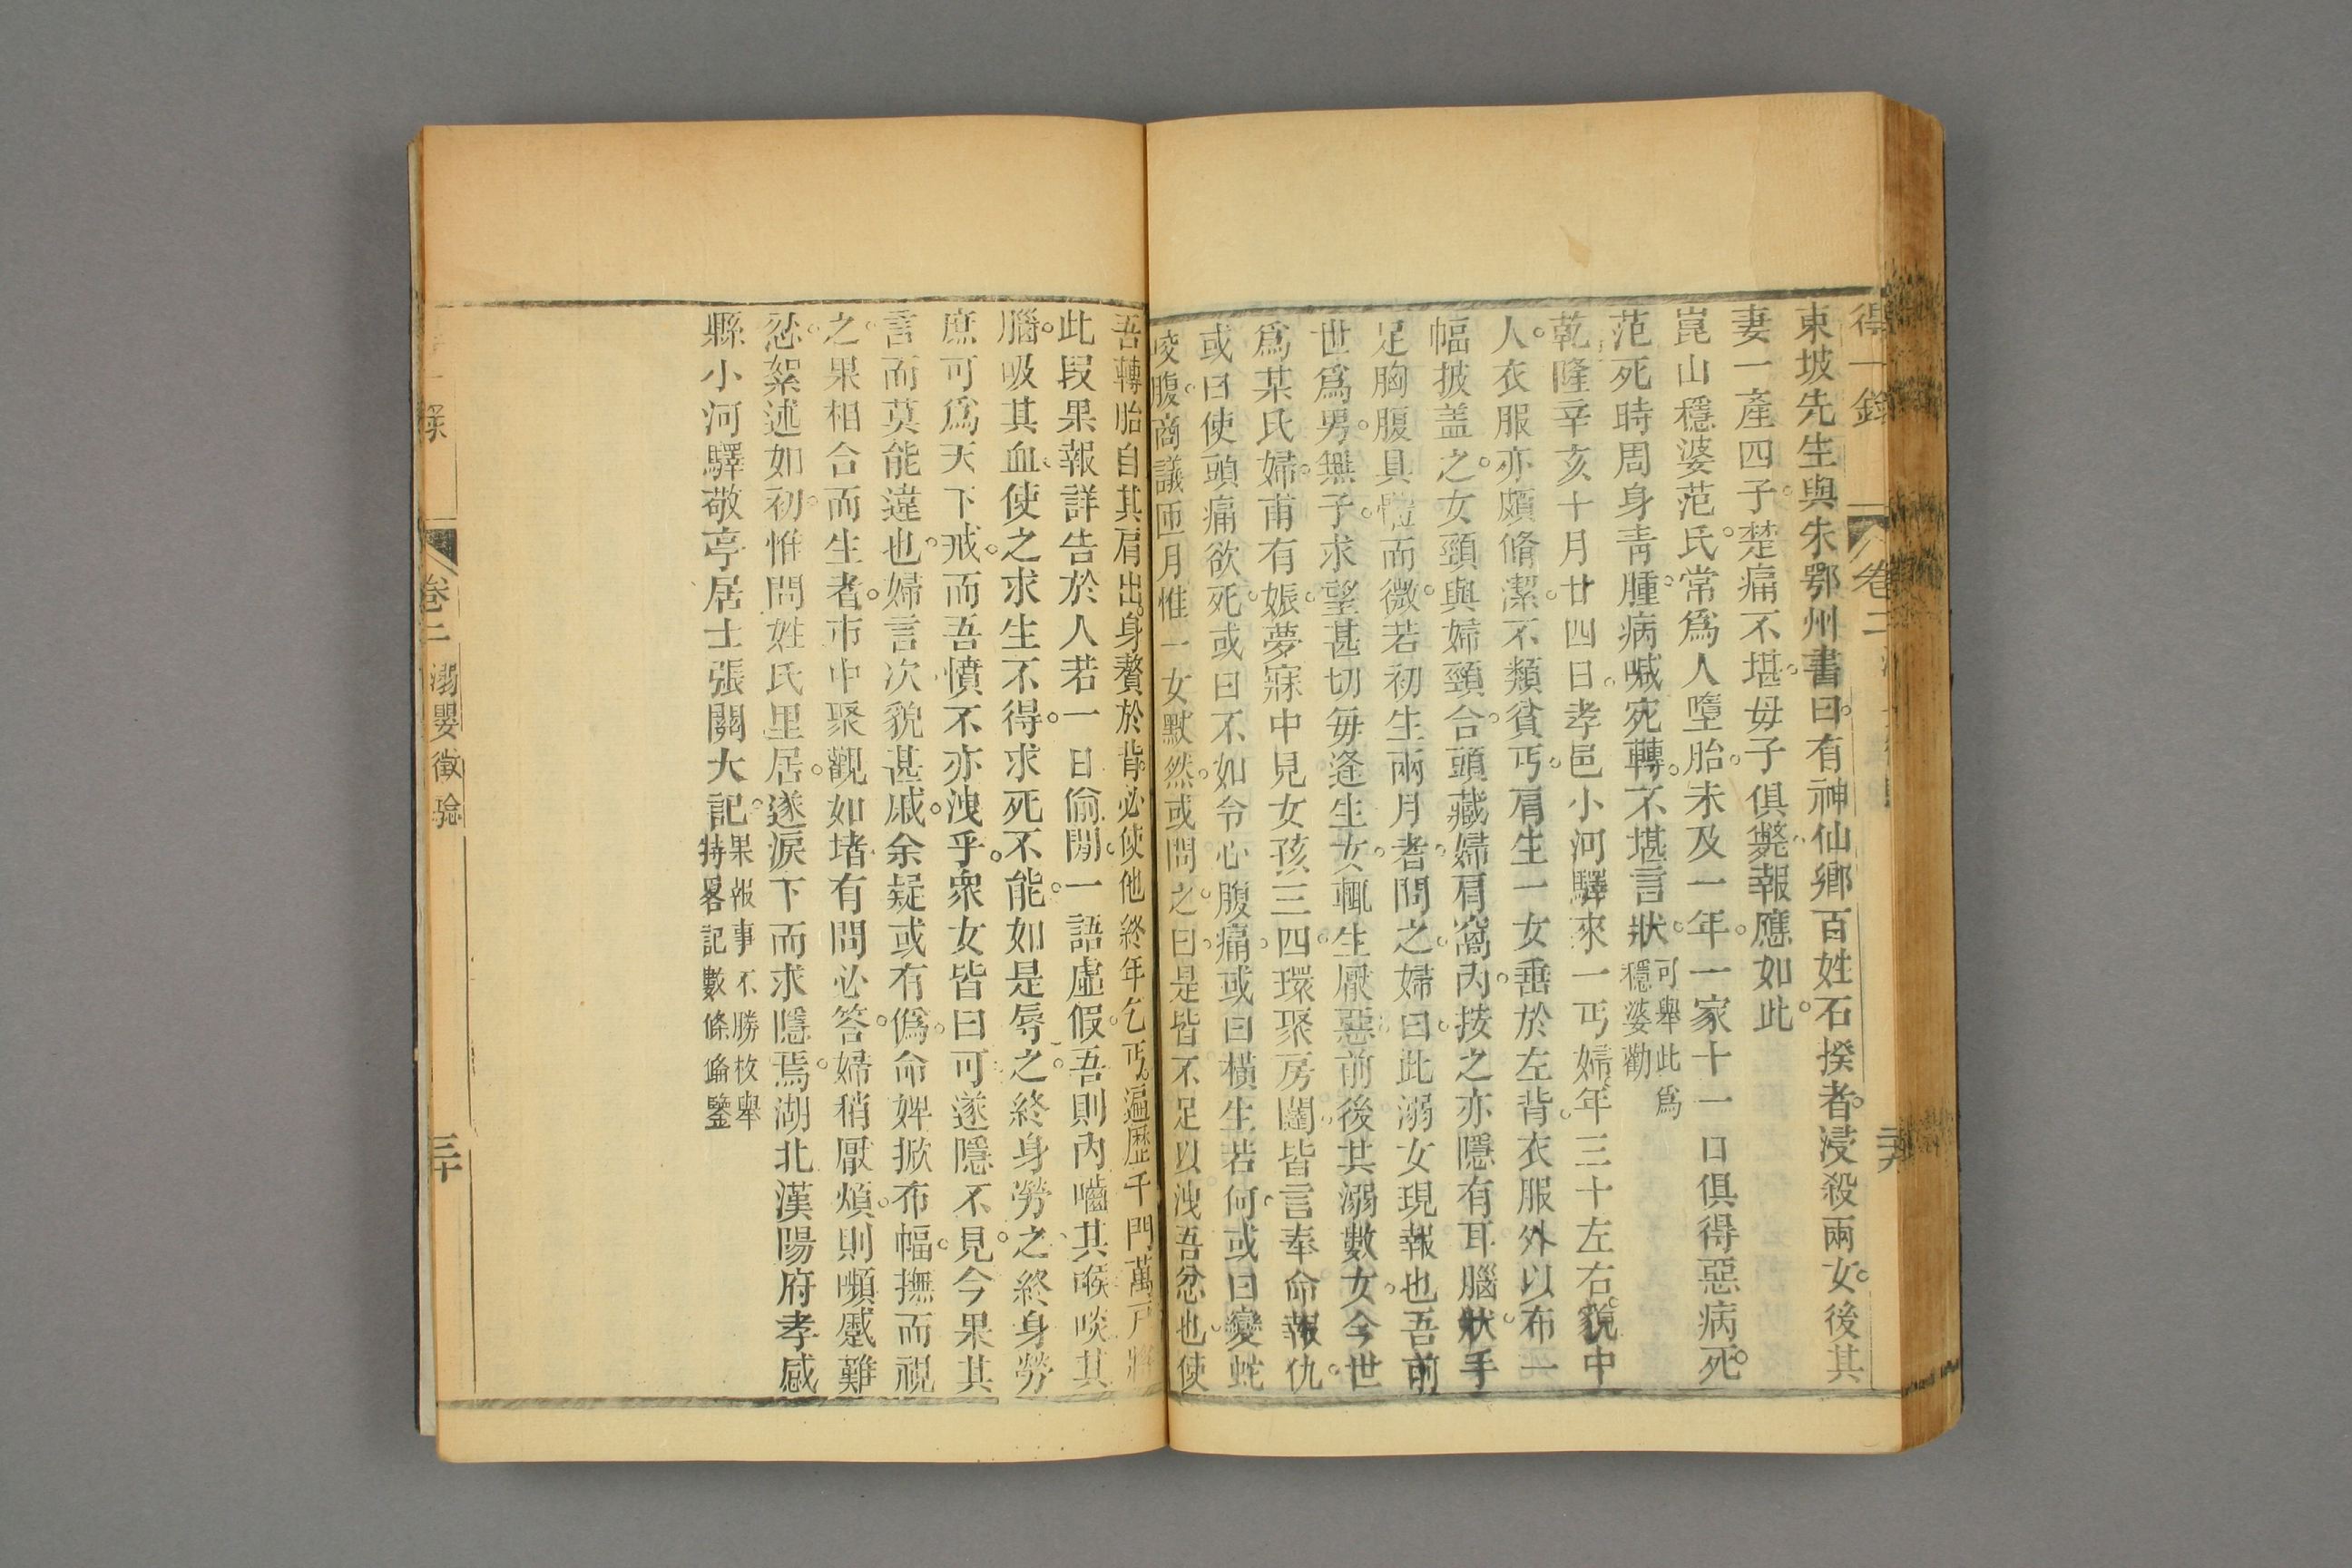 得一錄 卷二
東坡先生與朱鄂州書曰有神仙鄉百姓石揆者浸殺兩女後其
妻一產四子楚痛不堪母子俱斃報應如此
崑山穩婆范氏常為人墮胎未及一年一家十一口俱得惡病死
范死時周身青腫病喊宛轉不堪言狀可舉此為
穩婆勸
乾隆辛亥十月廿四日孝邑小河驛來一丐婦年三十左右貌中
人衣服亦頗脩潔不類貧丐肩生一女垂於左背衣服外以布一
幅披盖之女頸與婦頸合頭藏婦肩窩內按之亦隱有耳腦狀手
足胸腹具體而微若初生兩月者問之婦曰此溺女現報也吾前
世爲男無子求望甚切每逢生女輒生厭惡前後其溺數女今世
爲某氏婦甫有娠夢寐中見女孩三四環聚房闥皆言奉命報仇
或曰使頭痛欲死或曰不如令心腹痛或曰橫生若何或曰變蛇
凌腹商議匝月惟一女默然或問之曰是皆不足以洩吾忿也使
吾轉胎自其肩出身贅於背必使他終年乞丐遍歷千門萬戶將
此段果報詳告於人若一日偷閒一語虛假吾則內嚙其喉啖其
腦吸其血使之求生不得求死不能如是辱之終身勞之終身勞
庶可爲天下戒而吾憤不亦洩乎衆女皆曰可遂隱不見今果其
言而莫能違也婦言次貌甚戚余疑或有僞命婢掀布幅撫而視
之果相合而生者市中聚觀如堵有問必答婦稍厭煩則嚬蹙難
忍絮述如初惟問姓氏里居遂淚下而求隱焉湖北漢陽府孝感
縣小河驛敬亭居士張關大記果報事不勝枚舉
特畧記數條偹鑒
卷二 溺嬰徵驗 三十